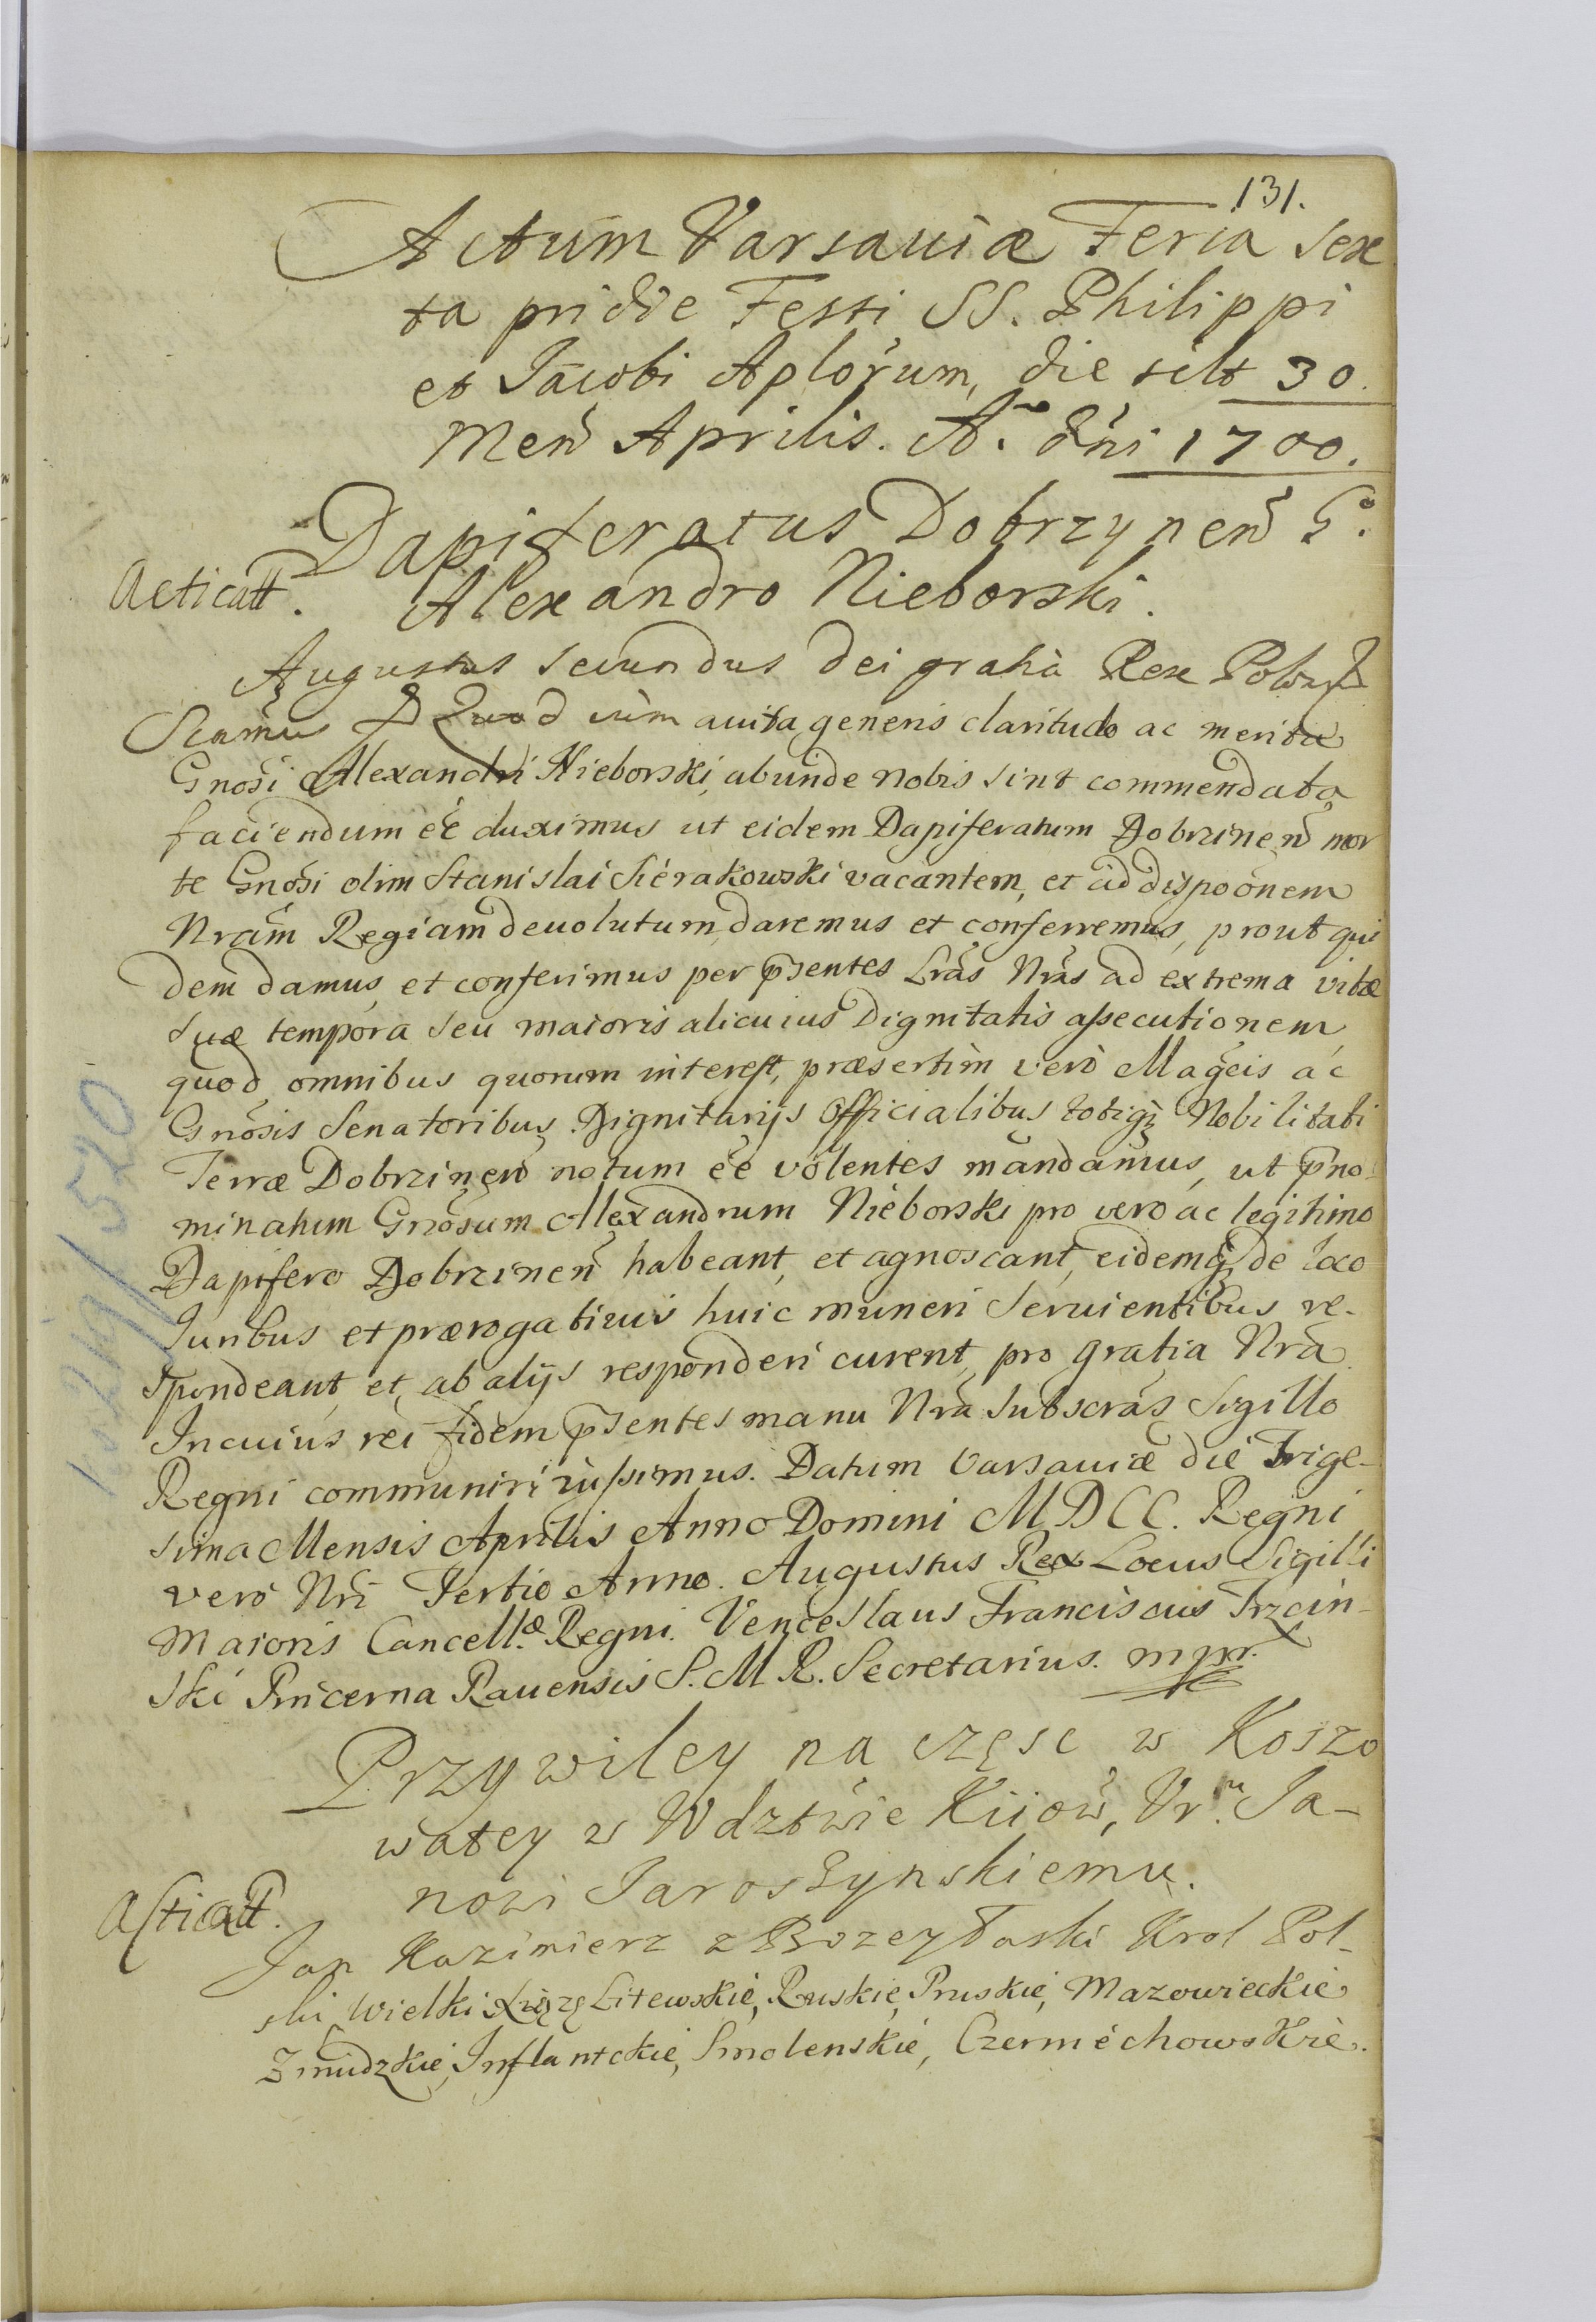 131.
Actum Varsaviæ Feria sex
ta pridie Festi SS. Philippi
et Jacobi Aplorum, die silt 30.
Men Aprilis. Ao dni 1700.
Dapiferatus Dobrzynen G.
Acticatt. Alexandro Nieborski.
Augustus secundus Dei gratia Rex Polon
Quod cum auita generis claritudo ac merita
Gnosi Alexandri Nieborski, abunde nobis sint commendata
faciendum ee duximus ut eidem Dapiferatum Dobrzinen mor
te Gnosi olim Stanislai Sierakowski vacantem, et ad dispoonem
Nram Regiam deuolutum, daremus et conferremus, prout qui
dem damus, et conferimus per psentes Lras Nras ad extrema vitæ
suæ tempora seu maioris alicuius Dignitatis assecutionem
quod omnibus quorum interest, præsertim vero Magcis ac
Gnosis Senatoribus Dignitarijs Officialibus totiq; Nobilitati
Terræ Dobrzinen notum ee volentes mandamus, ut pno
minatum Gnosum Alexandrum Nieborski pro vero ac legitimo
Dapifero Dobrzinen habeant, et agnoscant, eidemq; de loco
Juribus et prærogatiuis huic muneri seruientibus re-
spondeant, et ab alijs responderi curent, pro gratia Nra
In cuius rei fidem psentes manu Nra subscras Sigillo
Regni communiri iussimus. Datum Varsauiæ die Trige-
sima Mensis Aprilis Anno Domini MDCC. Regni
vero Nri Tertio Anno. Augustus Rex Locus Sigilli
Maioris Cancell.æ Regni. Venceslaus Franciscus Trzcin-
ski Pincerna Rauensis S. M R. Secretarius. mpr.
Przywiley na częsc w Koszo
watey w Wdztwie Kiiow, Vr.u Ja-
nowi Jaroszynskiemu.
Acticatt.
Jan Kazimierz z Bozey Łaski Krol Pol-
ski Wielki Xiążę Litewskie, Ruskie, Pruskie, Mazowieckie
Zmudzkie, Inflantckie, Smolenskie, Czerniechowskie.